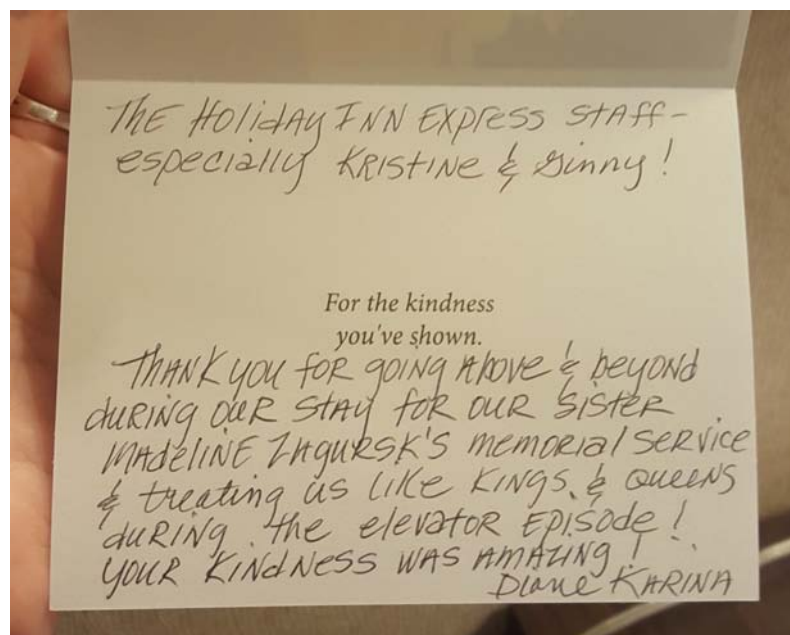 The Holiday Inn Express Staff -
especially Kristine & Ginny!
For the kindness
you've shown.
Thank you for going above & beyond
during our stay for our sister
Madeline Zagursk's memorial service
& treating us like Kings & Queens
during the elevator episode!
Your kindness was amazing!
Diane Karina